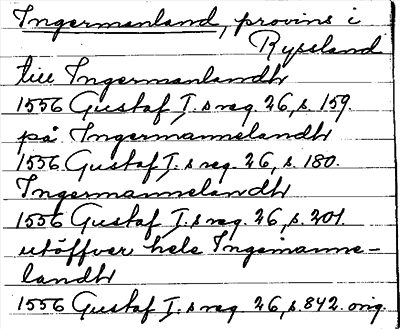 Ingermanland, provins i
Ryssland
till Ingermanlandh
1556 Gustaf I.s reg. 26, s. 159.
på Ingermannelandh
1556 Gustaf I.s reg. 26, s. 180.
Ingermannelandh
1556 Gustaf I.s reg. 26, s. 201.
utöffver hele Ingemanne-
landh
1556 Gustaf I.s reg. 26, s. 842. orig.